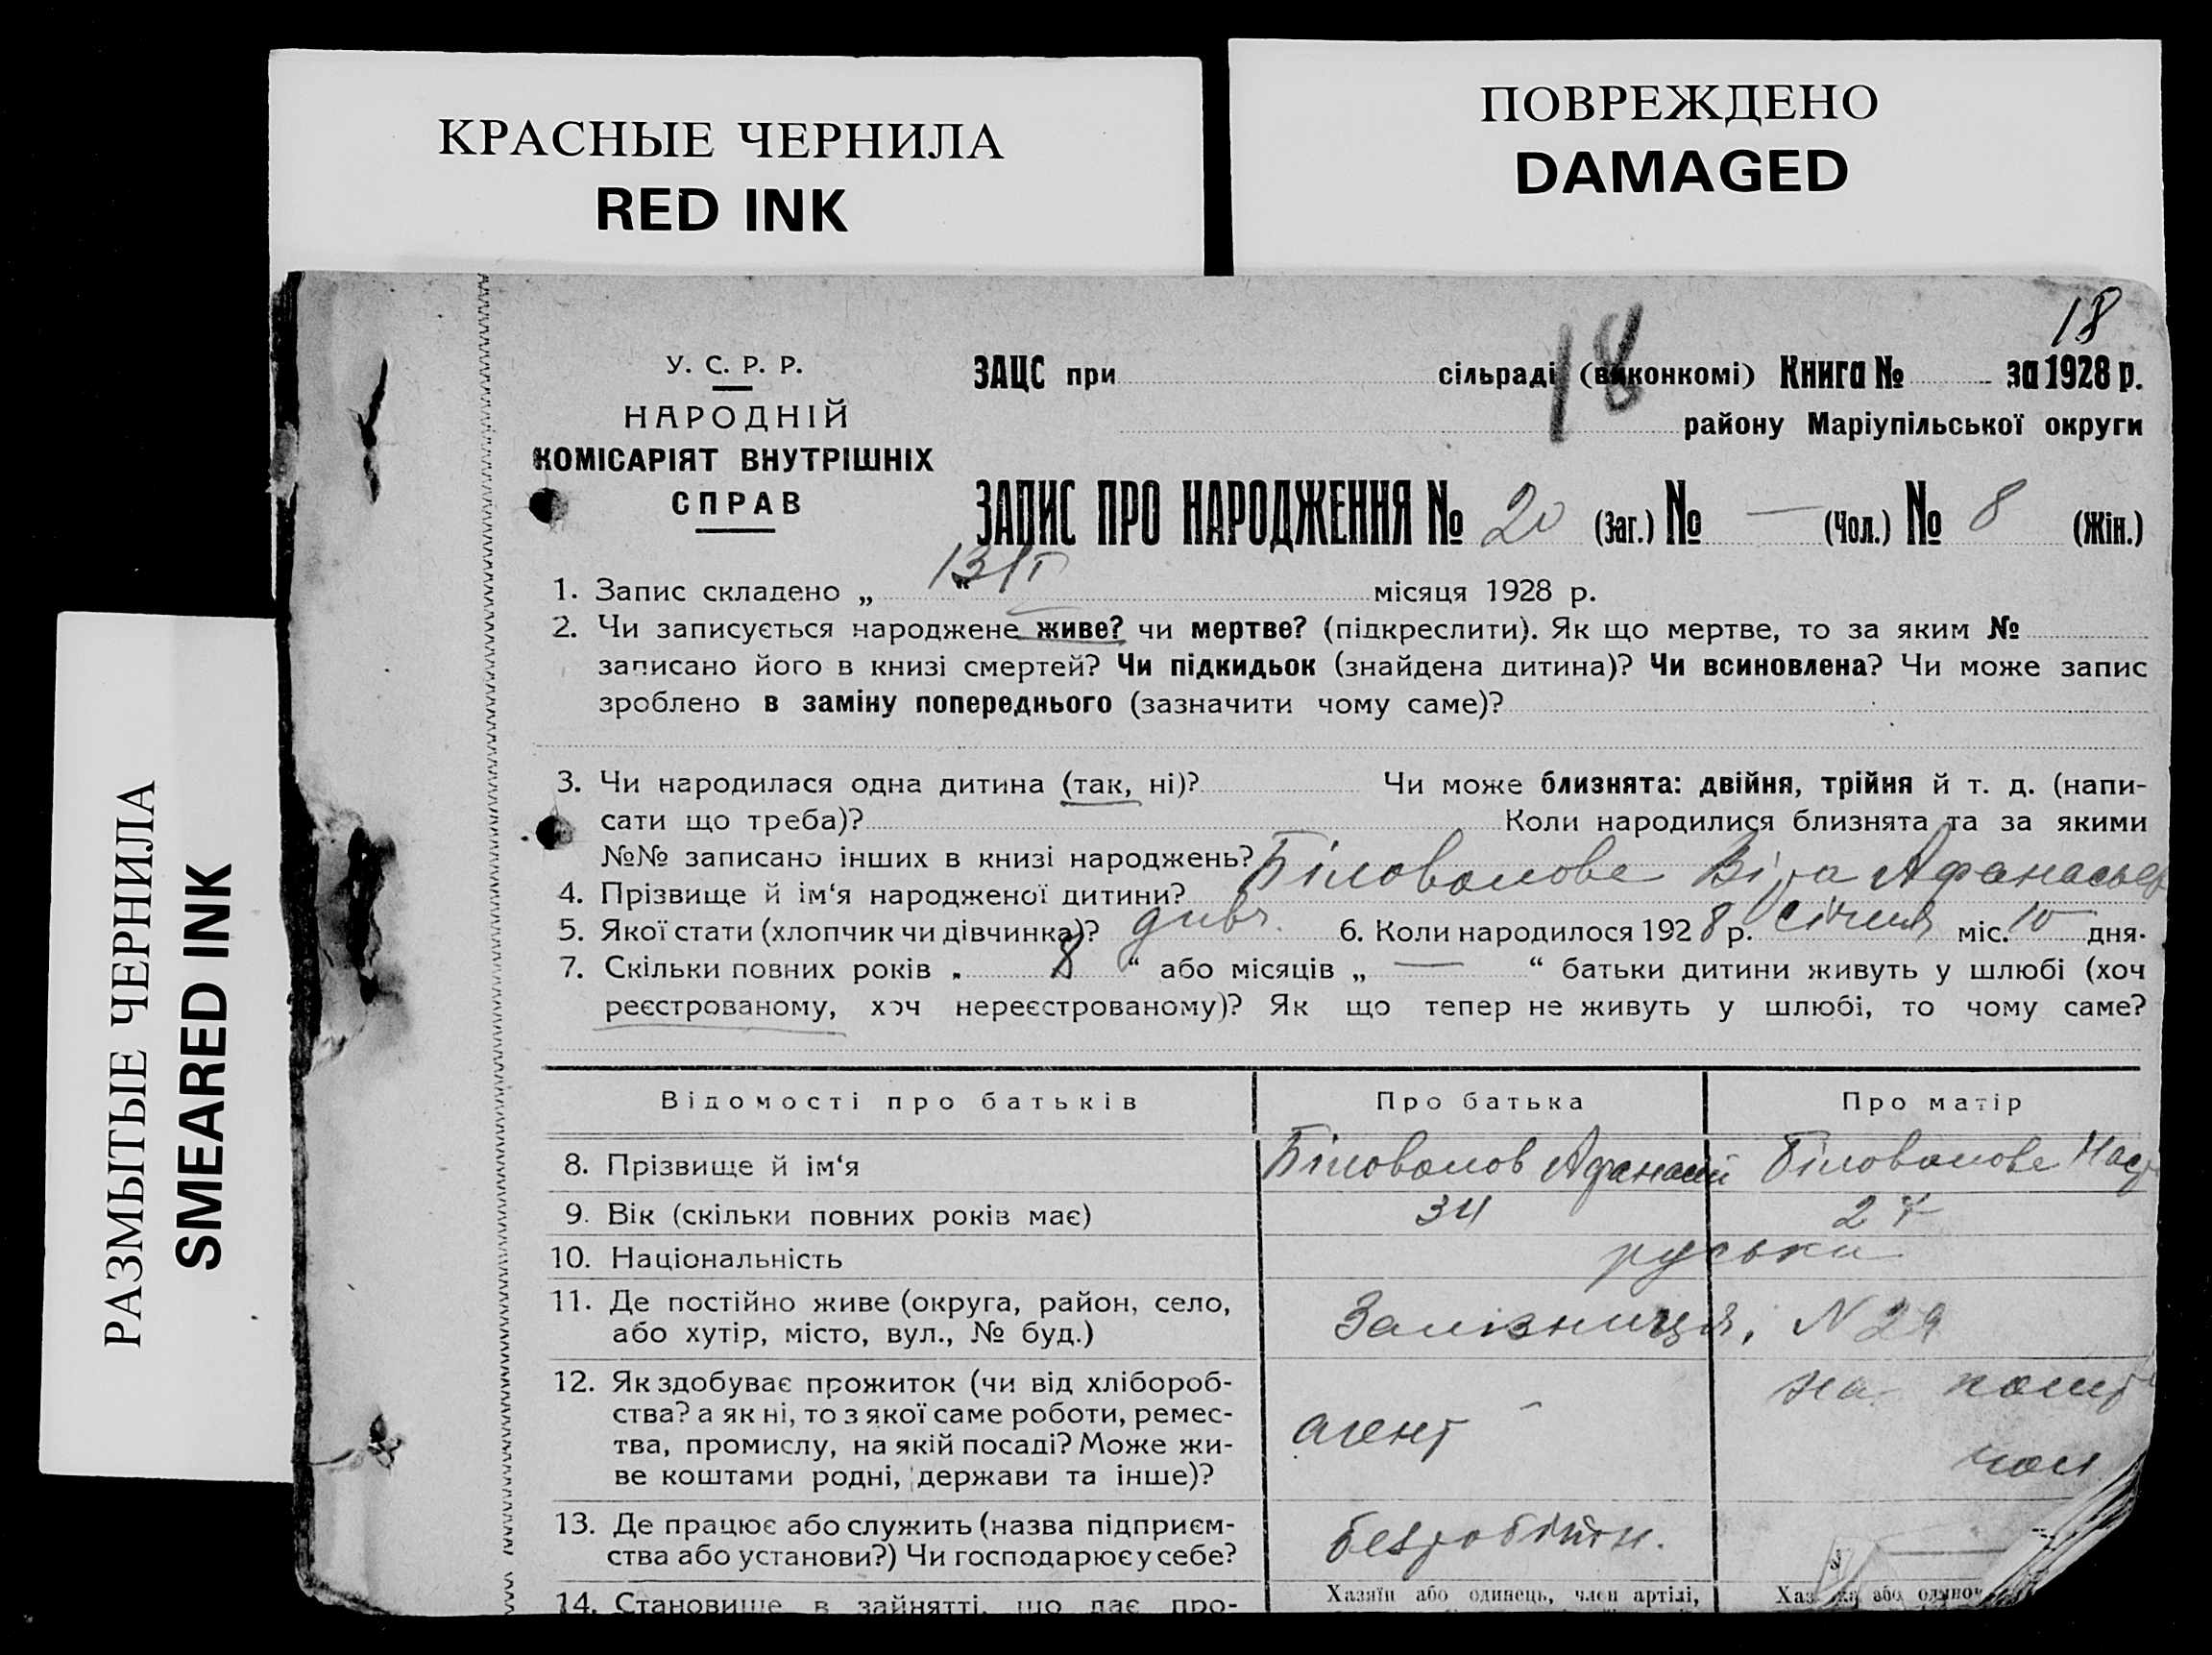 КРАСНЫЕ ЧЕРНИЛА
RED INK
ПОВРЕЖДЕНО
DAMAGED
РАЗМЫТЫЕ ЧЕРНИЛА
SMEARED INK
18
У. С. Р. Р.
НАРОДНІЙ
КОМІСАРІЯТ ВНУТРІШНІХ
СПРАВ
ЗАЦС при сільраді (виконкомі) Книга № за 1928 р.
18
району Маріупільської округи
ЗАПИС ПРО НАРОДЖЕННЯ № 20 (Заг.) № — (Чол.) № 8 (Жін.)
1. Запис складено „ 13/I “ місяця 1928 р.
2. Чи записується народжене живе? чи мертве? (підкреслити). Як що мертве, то за яким №
записано його в книзі смертей? Чи підкидьок (знайдена дитина)? Чи всиновлена? Чи може запис
зроблено в заміну попереднього (зазначити чому саме)?
3. Чи народилася одна дитина (так, ні)? Чи може близнята: двійня, трійня й т. д. (напи-
сати що треба)? Коли народилися близнята та за якими
№№ записано інших в книзі народжень?
4. Прізвище й ім‘я народженої дитини? Біловолова Віра Афанасьев
5. Якої стати (хлопчик чи дівчинка)? дивч. 6. Коли народилося 1928 р. Січня міс. 10 дня.
7. Скільки повних років „ 8 “ або місяців „ — “ батьки дитини живуть у шлюбі (хоч
реєстрованому, хоч нереєстрованому)? Як що тепер не живуть у шлюбі, то чому саме?
Відомості про батьків Про батька Про матір
8. Прізвище й ім‘я Біловолов Афанасій Біловолова
9. Вік (скільки повних років має) 34
10. Національність руська
11. Де постійно живе (округа, район, село,
або хутір, місто, вул., № буд.) Залізниця, N 29
12. Як здобуває прожиток (чи від хлібороб-
ства? а як ні, то з якої саме роботи, ремес-
тва, промислу, на якій посаді? Може жи-
ве коштами родні, держави та інше)?
агент
на
чол
13. Де працює або служить (назва підприєм-
ства або установи?) Чи господарює у себе? безробітн.
14. Становище в зайнятті, що дає про-
Хазяїн або одинець, член артілі,
або